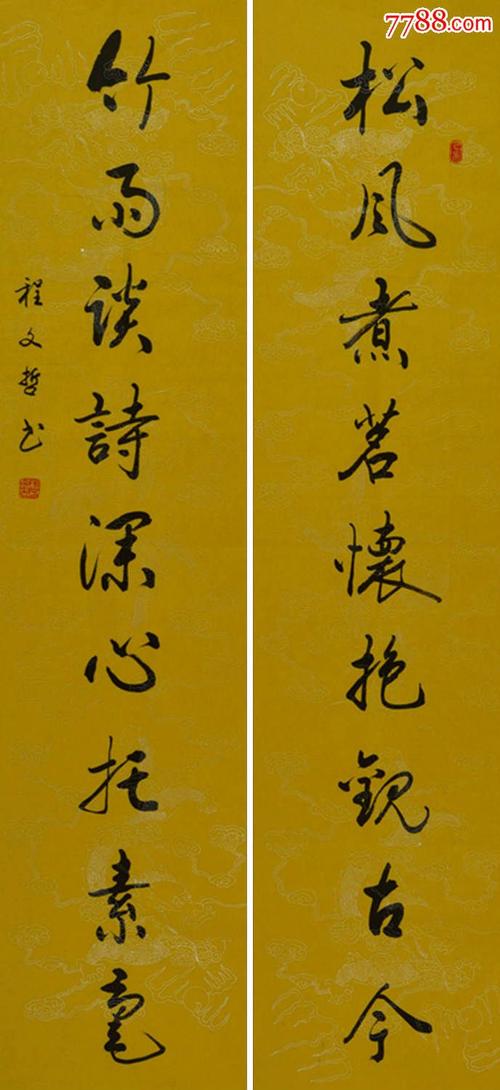 7788.com
松风煮茗懷抱觀古今
竹雨谈詩深心托素毫
程文哲书